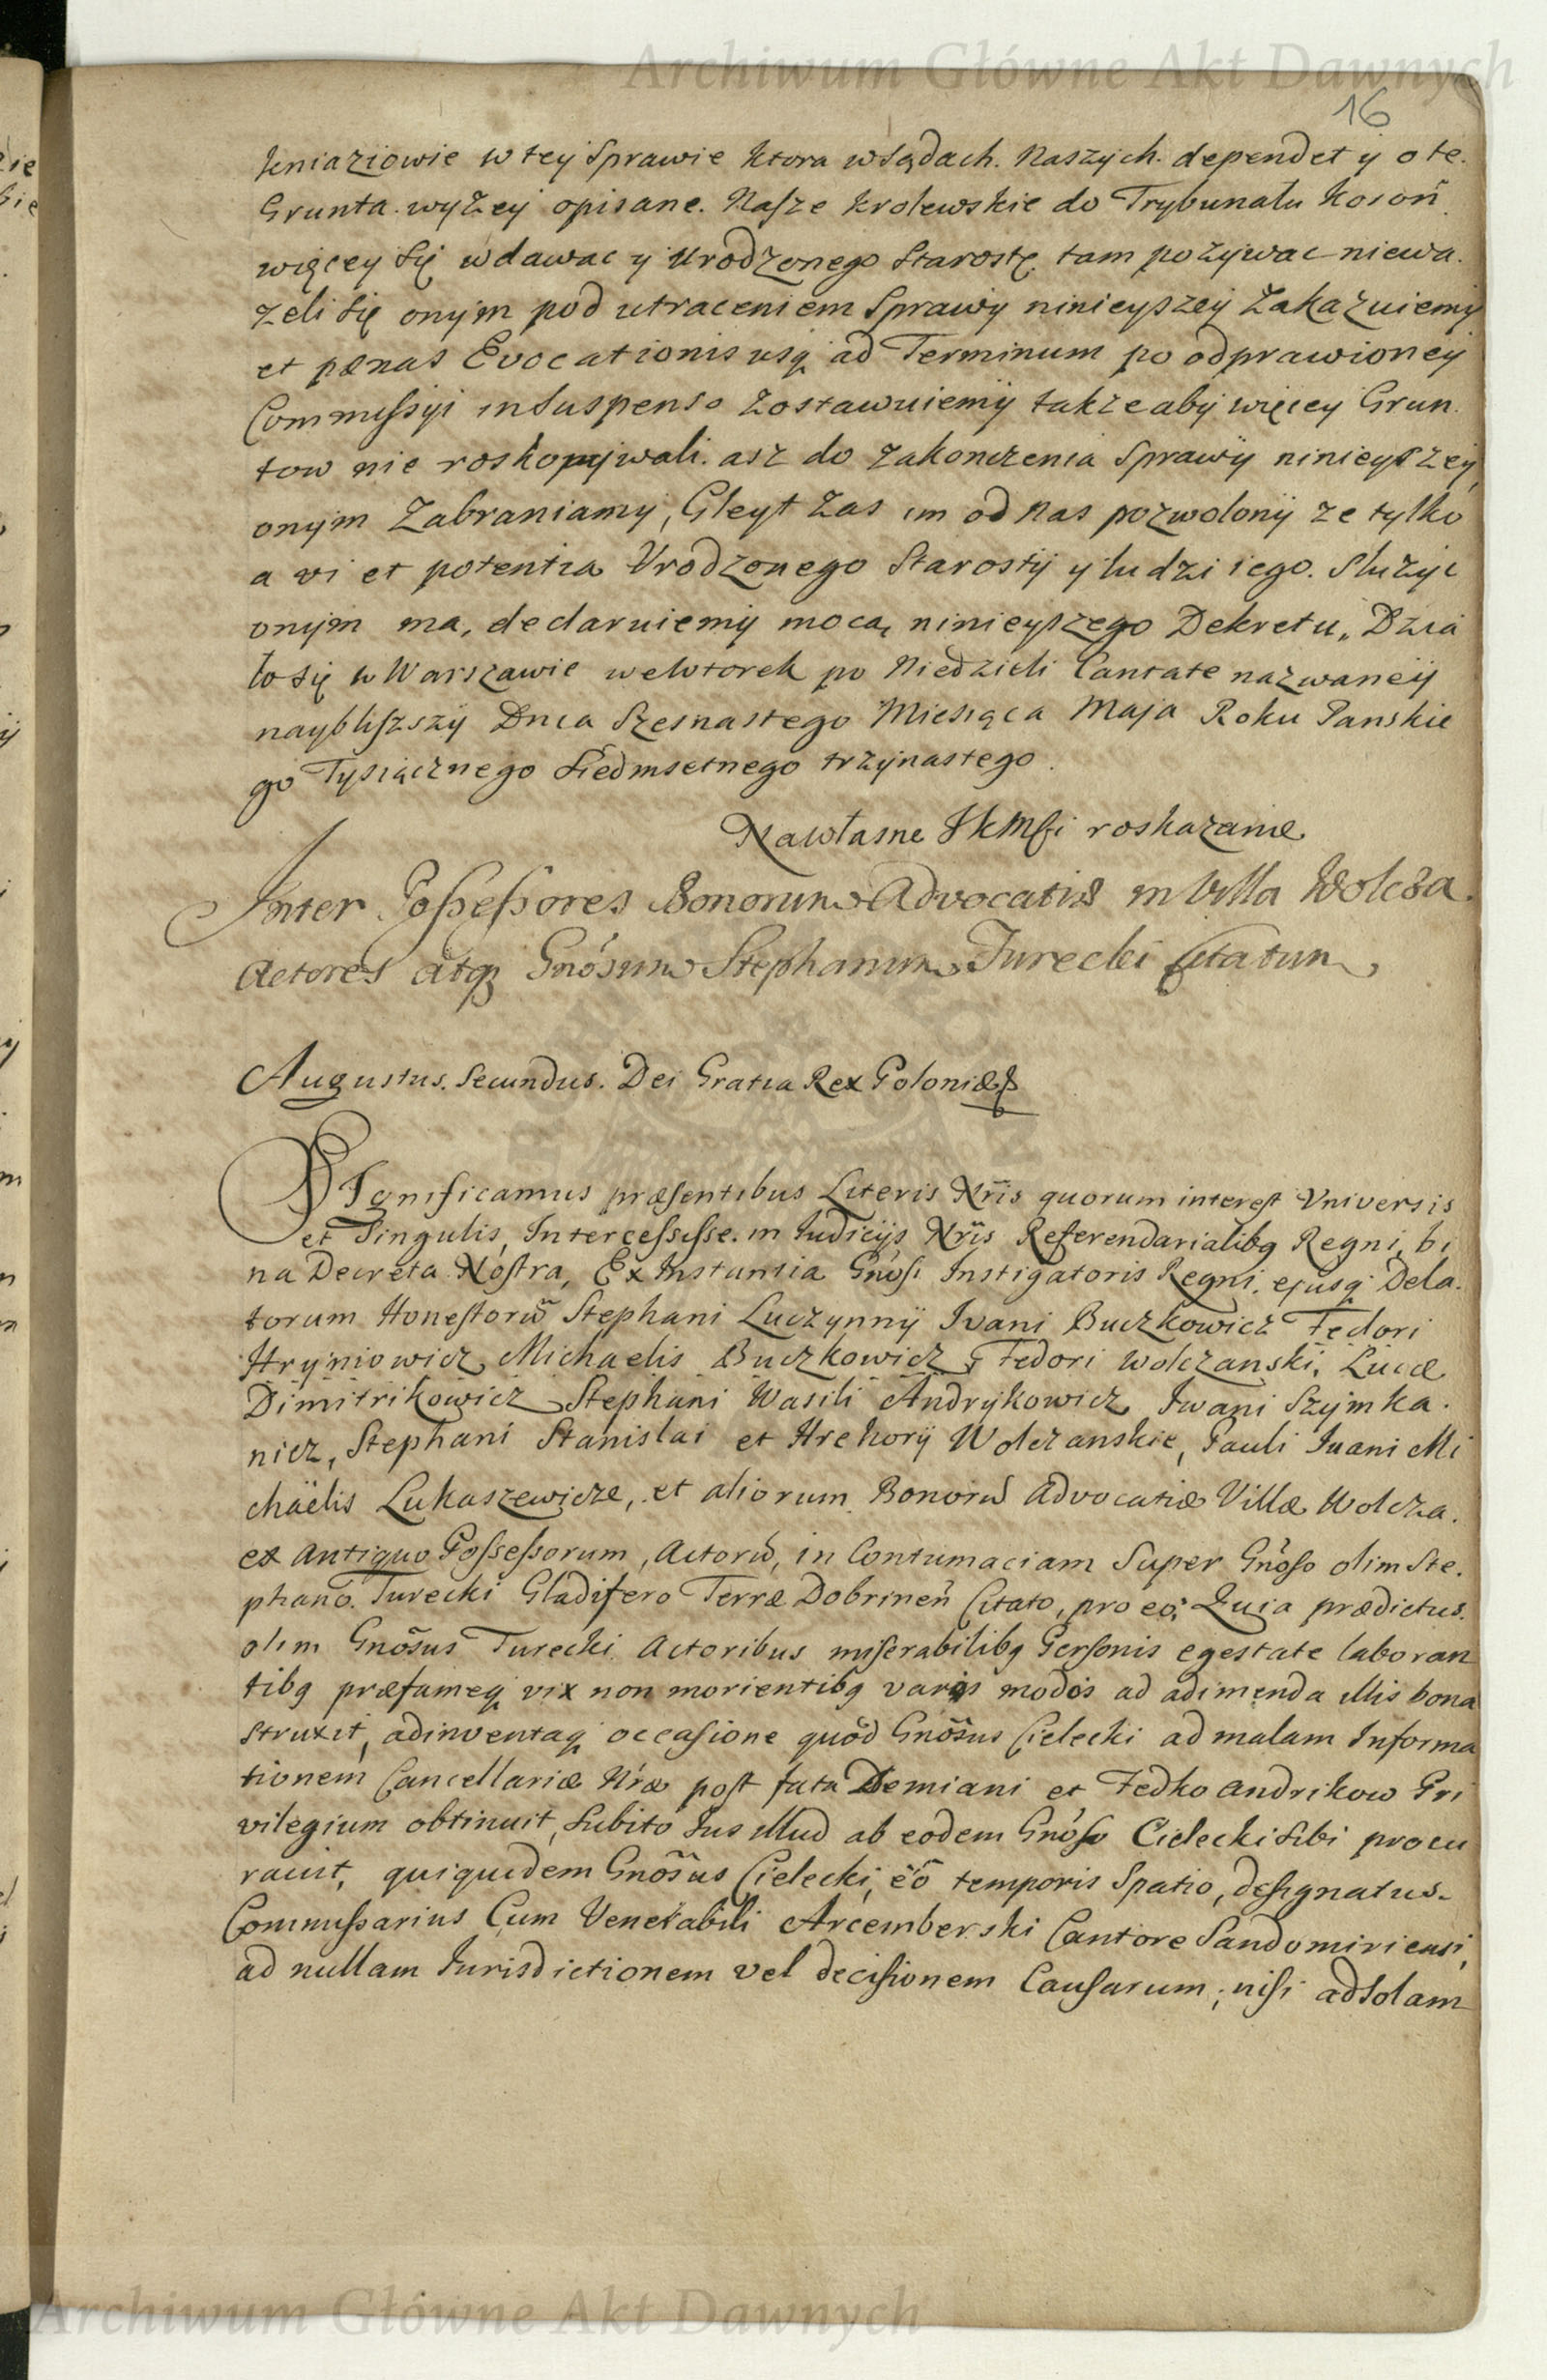 Archiwum Główne Akt Dawnych
16
Kniaziowie w tey Sprawie ktora w Sądach. Naszych. dependet y o te.
Grunta. wyżey opisane. Nasze krolewskie do Trybunału Koroñ.
więcey się wdawac y Urodzonego Starostę tam pozywac niewa.
zeli się onym pod utraceniem Sprawy ninieyszey Zakazuiemy
et pænas Evocationis usq ad Terminum po odprawioney
Commissyi in Suspenso Zostawuiemy takze aby więcey Grun.
tow nie roskopywali. asz do Zakonczenia Sprawy ninieyszey
onym Zabraniamy, Gleyt Zas im od Nas pozwolony ze tylko
a vi et potentia Urodzonego Starosty y ludzi iego. Słuzyc
onym ma, declaruiemy mocą ninieyszego Dekretu, Dzia
ło się w Warszawie we Wtorek po Niedzieli Cantate nazwaney
naybliszszy Dnia Szesnastego Miesiąca Maja Roku Panskie
go Tysiącznego Siedmsetnego trzynastego.
Na własne JKMsci roskazanie
Inter Possessores Bonorum Advocatiæ in Villa Wolcza.
Actores atq Gnósum Stephanum Turecki Citatum
Augustus. Secundus. Dei Gratia Rex Poloniæ
Significamus præsentibus Literis Nris quorum interest Universis
et Singulis, Intercessisse. in Iudicijs Nris Referendarialibq Regni, bi
na Decreta Nostra, Ex Instantia Gnósi Instigatoris Regni. ejusq Dela.
torum Honestorũ Stephani Luczynny Ivani Buczkowicz Fedori
Hryniowicz, Michaelis Buczkowicz, Fedori Wolczanski, Lucæ
Dimitrikowicz Stephani Wasili Andrykowicz, Iwani Szymka.
nicz, Stephani Stanislai et Hrehory Wolczanskie, Pauli Iuani Mi
chäelis Lukaszewicze, et aliorum Bonorũ Advocatiæ Villæ Wolcza.
ex antiquo Possessorum, Actorũ, in Contumaciam Super Gnóso olim Ste.
phano. Turecki Gladifero Terræ Dobrineñ Citato, pro eo; Quia prædictus.
olim Gnõsus Turecki Actoribus miserabilibq Personis egestate laboran
tibq præfameq vix non morientibq varijs modis ad adimenda illis bona
struxit, adinventaq occasione quòd Gnõsus Cielecki ad malam Informa
tionem Cancellariæ Nræ post fata Demiani et Fedko Andrikow Pri
vilegium obtinuit, Subito Ius illud ab eodem Gnóso Cielecki Sibi procu
rauit, quiquidem Gnõsus Cielecki, eô temporis Spatio, designatus.
Commissarius Cum Venerabili Arcemberski Cantore Sandomiriensi,
ad nullam Iurisdictionem vel decisionem Causarum; nisi ad Solam
Archiwum Główne Akt Dawnych